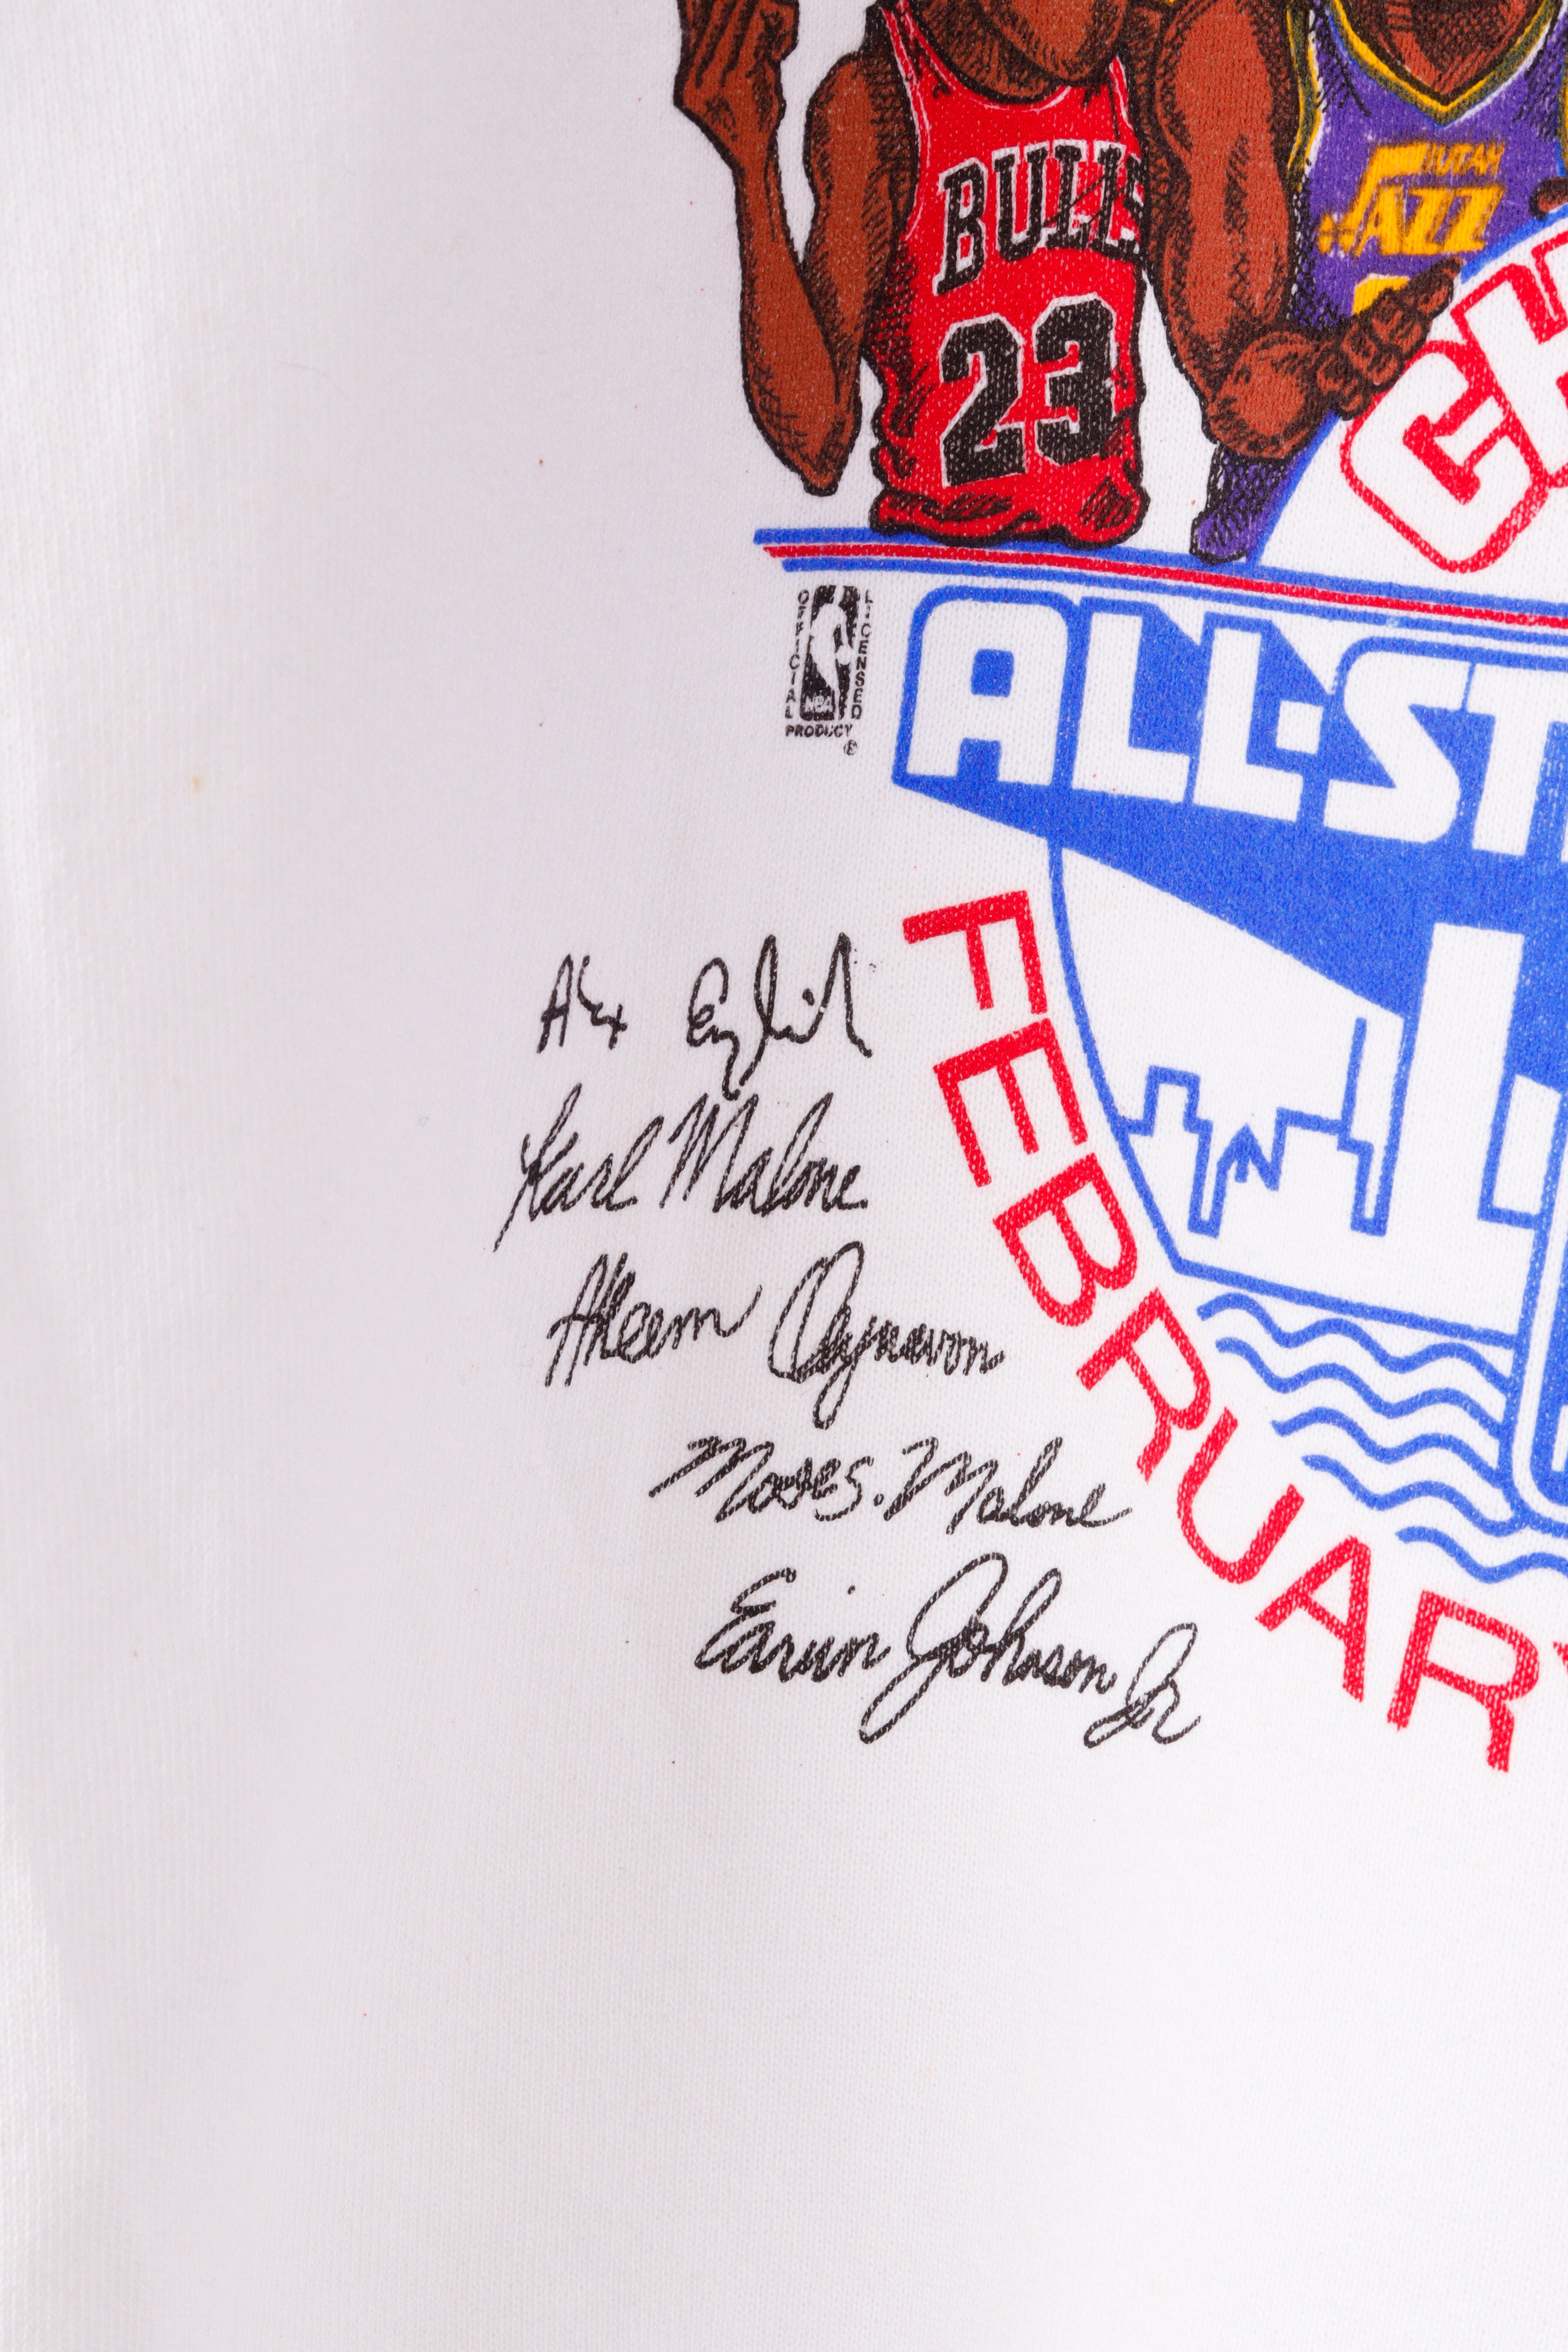 BULLS
23
UTAH
JAZZ
CH
OFFICIAL LICENSED
NBA
PRODUCT
®
ALL-ST
FEBRUARY
Alex English
Karl Malone
Akeem Olajuwon
Moses Malone
Earvin Johnson Jr